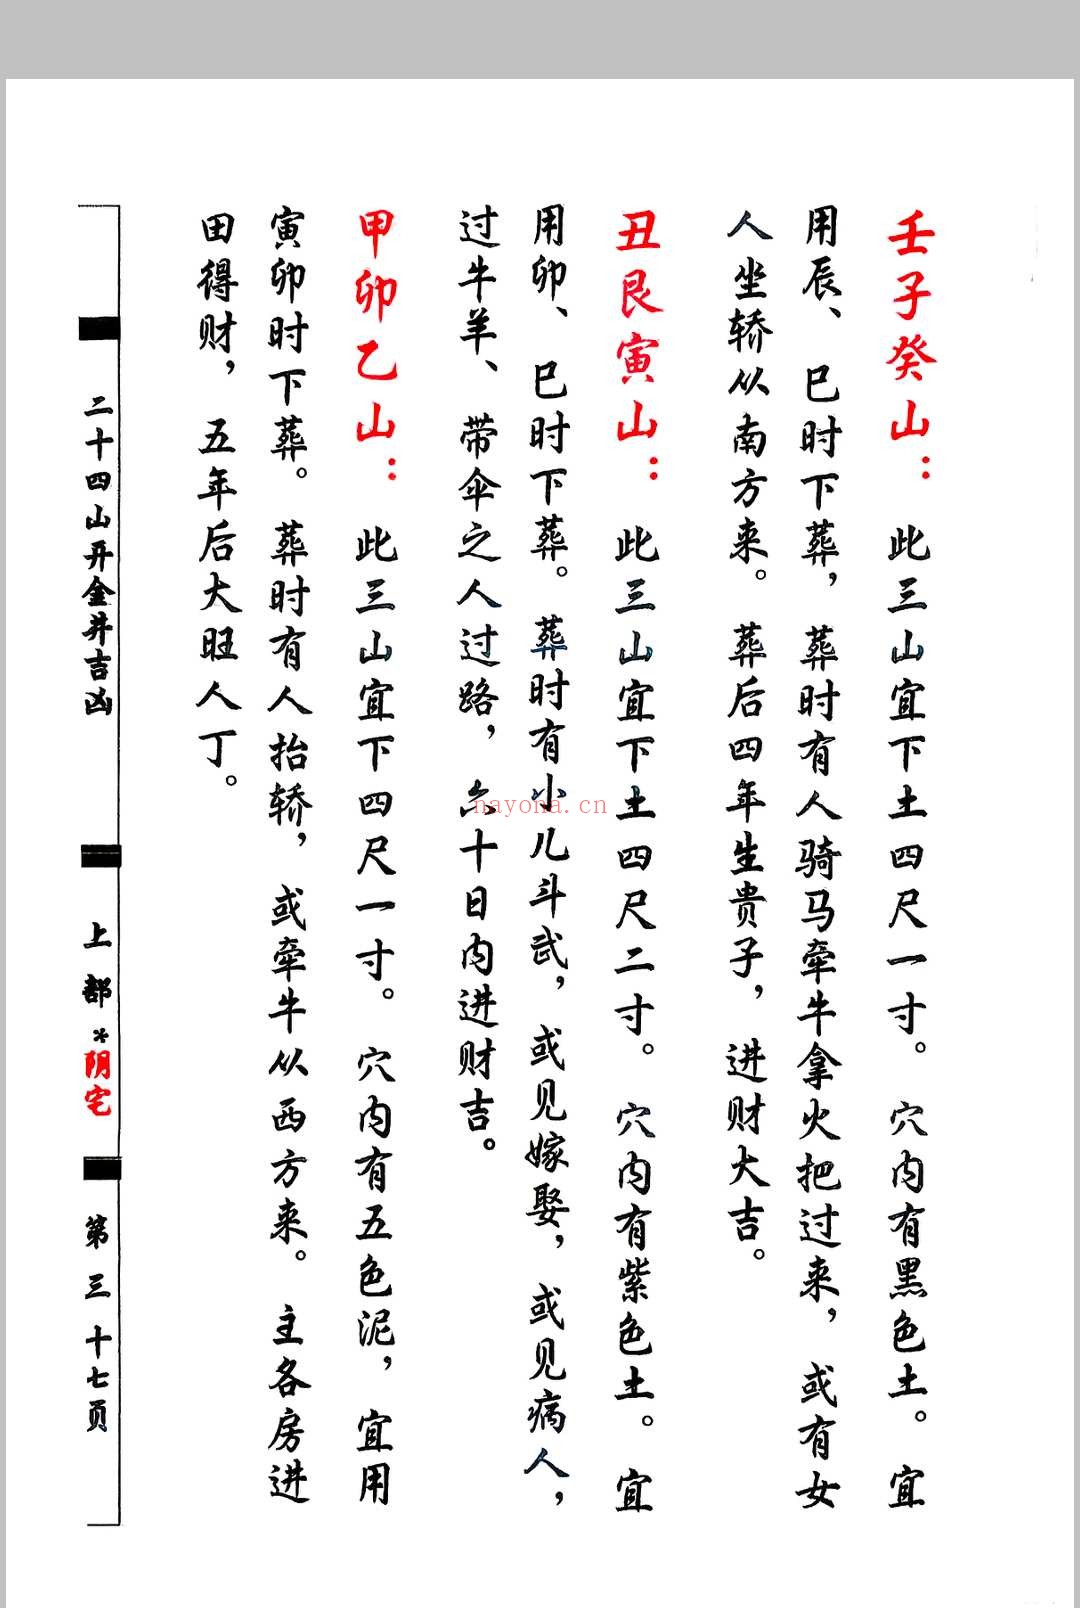 壬子癸山：此三山宜下土四尺一寸。穴内有黑色土。宜
用辰、巳时下葬，葬时有人骑马牵牛拿火把过来，或有女
人坐轿从南方来。葬后四年生贵子，进财大吉。
丑艮寅山：此三山宜下土四尺二寸。穴内有紫色土。宜
用卯、巳时下葬。葬时有小儿斗武，或见嫁娶，或见病人，
过牛羊、带伞之人过路，六十日内进财吉。
甲卯乙山：此三山宜下四尺一寸。穴内有五色泥，宜用
寅卯时下葬。葬时有人抬轿，或牵牛从西方来。主各房进
田得财，五年后大旺人丁。
二十四山开金井吉凶
上部*阴宅
第三十七页
nayona.cn